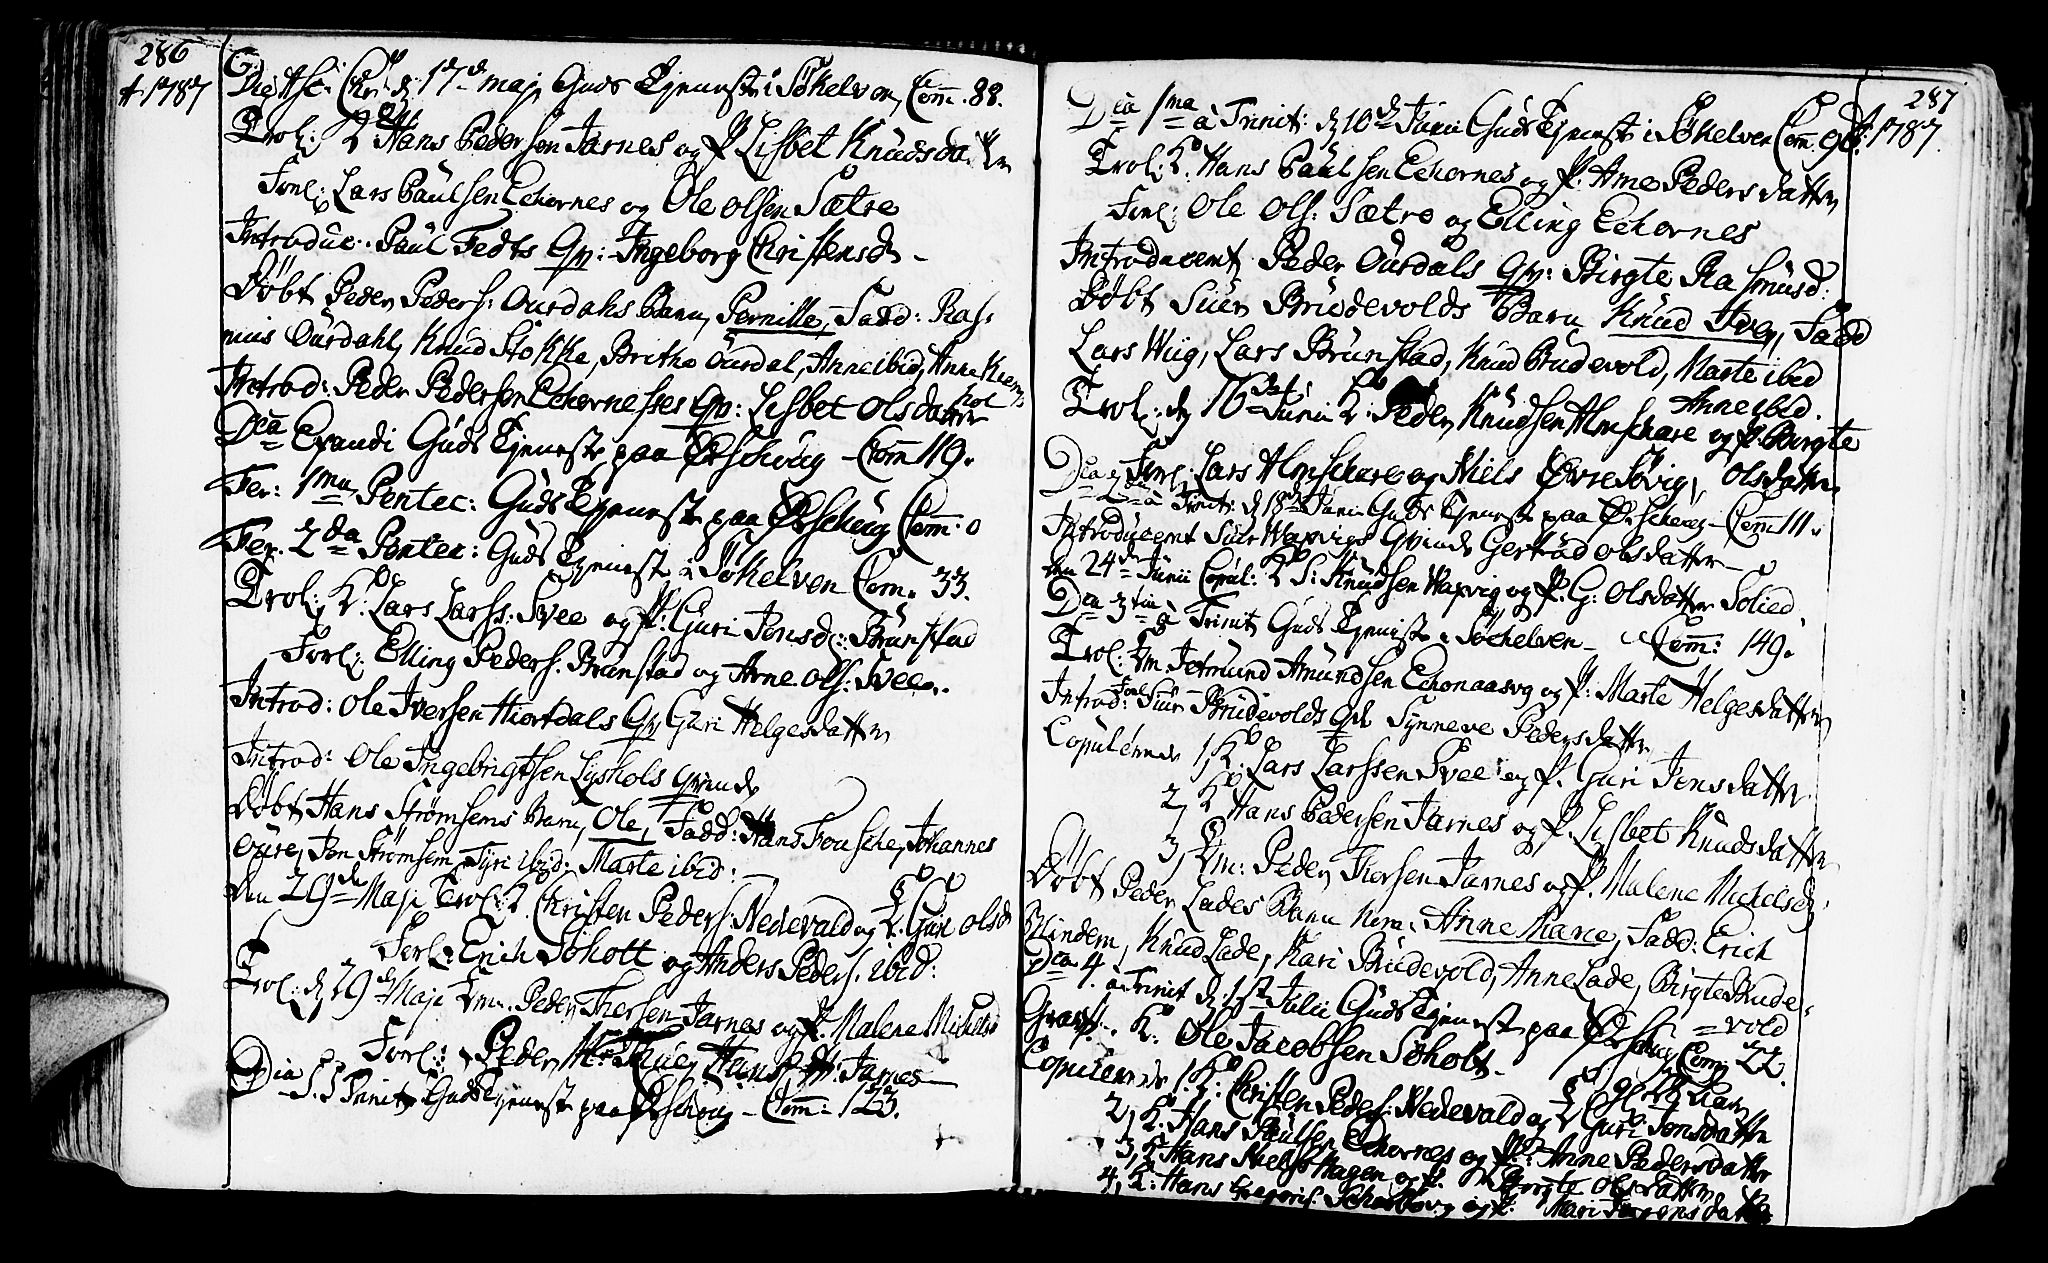 286
A 1787
Die Asc: Chr: d. 17de maji Guds Tjeneste i Søkelven, Com. 88.
Trol: K. Hans Pedersen Jarnes og P. Lisbet Knudsdatter
Forl: Lars Paulsen Echornes og Ole Olsen Sætre
Introduc: Paul Fedts Qv: Ingeborg Christensd.
Døbt Peder Peders: Ourdahls Barn, Pernille, Fadd: Ras-
mus Ourdahl, Knud Stokke, Brithe Ourdal, Anne ibid, Anne Kiem-
hol
Introd: Peder Pedersen Echornesses Qv: Lisbet Olsdatter
Dca Exaudi Guds Tjeneste paa Ørschoug - Com 119.
Fer: 1ma Pentec: Guds Tjeneste paa Ørschoug Com: 0
Fer. 2da Pentec: Guds Tjeneste i Søkelven Com. 33.
Trol: K. Lars Larss: Svee og P. Guri Jonsd: Brunstad
Forl: Elling Peders. Brunstad og Arne Ols: Svee.
Introd: Ole Iversen Hiortdals Qv Guri Helgesdatter
Introd: Ole Ingebrigtsen Lyshols Qvinde
Døbt Hans Strømsems Barn, Ole, Fadd: Hans Johannes
Jon Strømsem, Tyri ibid: Marte ibid:
den 29de Maji Trol: K. Christen Peders. Nedevald og K. Guri Olsd
Forl: Erich Søholt og Anders Peders. ibid:
Trol: d. 29de Maji Em. Peder Thersen Jarnes og P. Malene Michelsd
Forl: Peder Hans Jarnes
Dca S.S. Trinit Guds Tjeneste paa Ørschoug - Com: 123.
287
A. 1787.
Dca 1ma à Trinit: d. 10de Junii Guds Tjeneste i Søkelven Com. 96.
Trol: K. Hans Paulsen Echornes og P. Anne Pedersdatter
Forl: Ole Ols: Sætre og Elling Echornes
Introducent Peder Ourdals Qv: Birgte Rasmusd:
Døbt Siur Brudevolds Barn Knud Iver, Fadd
Lars Wiig, Lars Brunstad, Knud Brudevold, Marte ibid
Anne ibid.
Trol: d. 16de Junii K. Peder Knudsen Almschare og P. Birgte
Olsdatter
Forl: Lars Almschare og Niels Øvre Søvig,
Dca 2da à Trinit: d. 18de Junii Guds Tjeneste paa Ørschoug - Com 111.
Introducent Siur Waxvigs Qvinde Gertrud Olsdatter
den 24de Junii Copul: K. S. Knudsen Waxvig og P. G: Olsdatter Solied,
Dca 3tia à Trinit Guds Tjeneste i Søchelven - Com: 149.
Trol: Em. Jetmund Amundsen Echonaasvg og P: Marte Helgesdatter
Forl
Introd: Siur Brudevolds Qde Synneve Pedersdatter
Copulerede 1, K. Lars Larssen Svee og P. Guri Jonsdatter
2, K. Hans Pedersen Jarnes og P. Lisbet Knudsdatter
3, Em: Peder Thersen Jarnes og P. Malene Michelsd,
Døbt Peder Lades Barn Anne Marie, Fadd: Erich
Blindem, Knud Lade, Kari Brudevold, Anne Lade, Birgte Brude-
= vold
Dca 4. a Trinit d. 1ste Julii Guds Tjeneste paa Ørschoug Com: 22.
Graft. K. Ole Jacobsen Søholt -
Copulerede 1. K. Christen Peders: Nedevald og K Guri Jonsdatter
2, K. Hans Paulsen Echornes og P. Anne Pedersdatter
3, K Hans Nielss. Hagen og P. Birgte Olsdatter
4, K. Hans og P. Mari Jensdatter